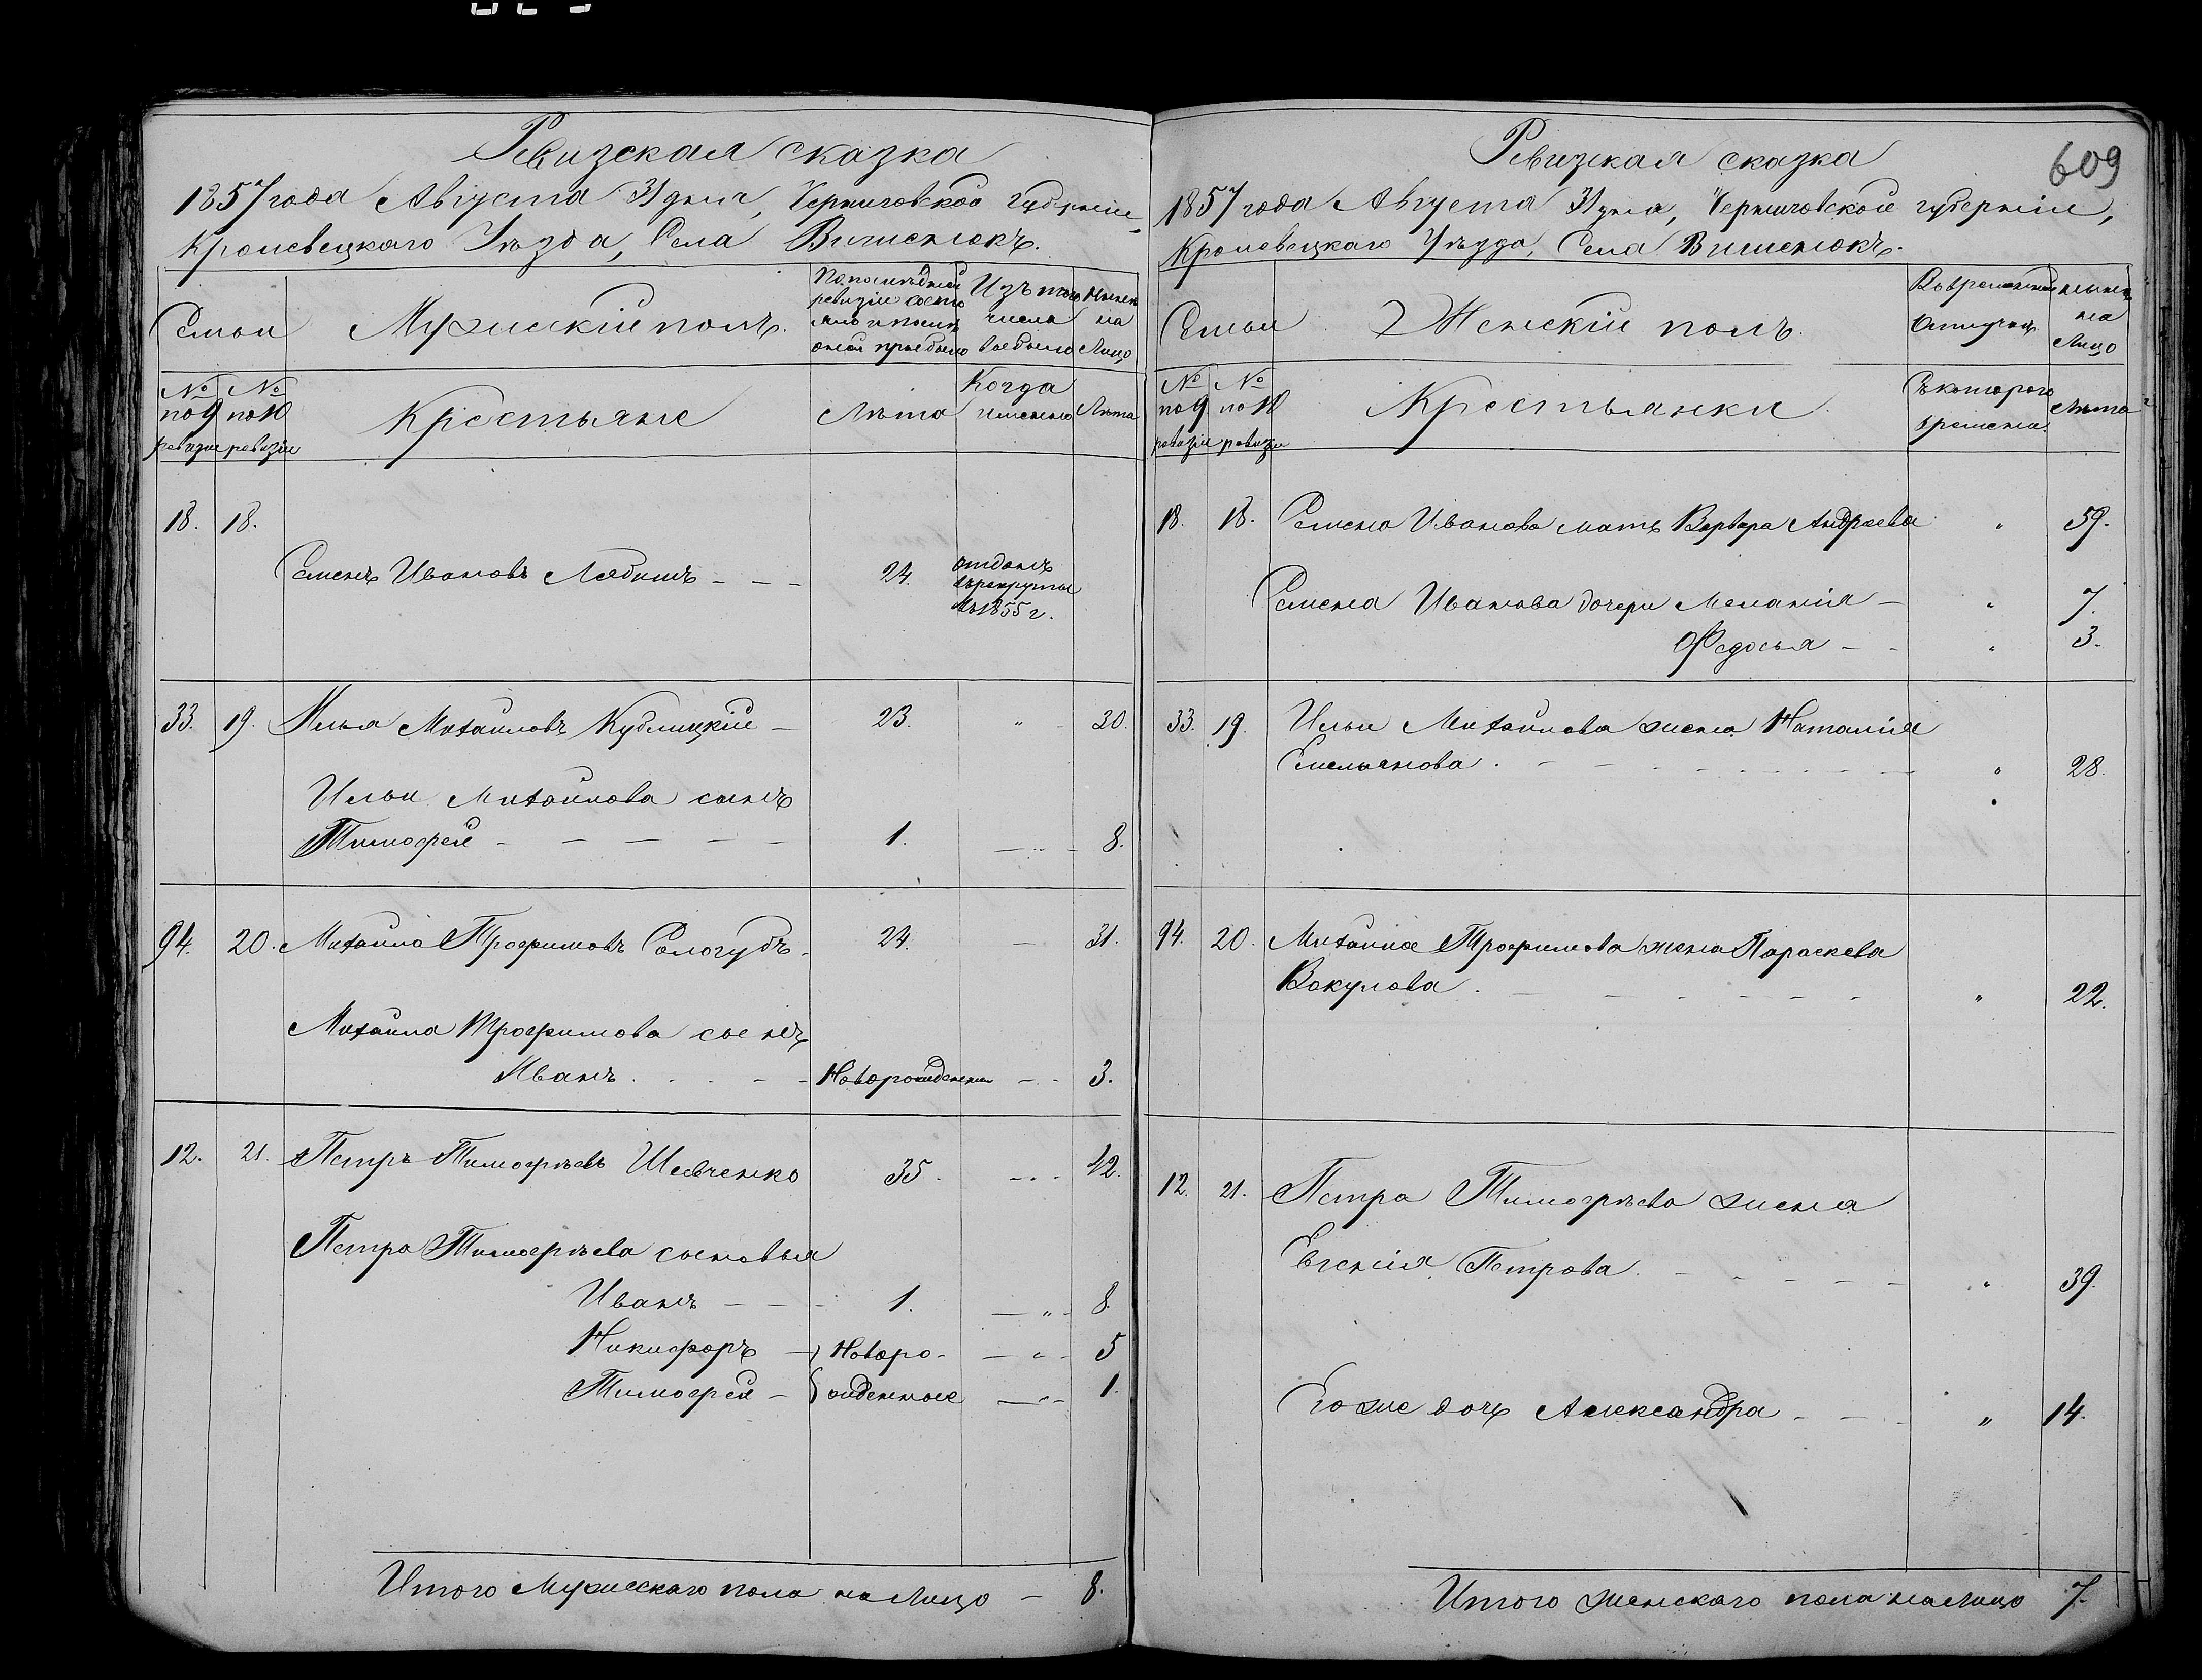 Ревизская сказка
1857 года Августа 31 дня, Черниговской губерніи,
Кролевецкаго Уѣзда, Села Вишенокъ.
Семьи
Мужескій полъ.
По последней
ревизіи состо
яло и послѣ
оной прибыло
Изъ того
числа
выбыло
Нынѣ
на
Лицо
№ №
по 9 по 10
ревизіи ревизіи
Крестьяне
Лѣта
Когда
именно
Лѣта
18. 18.
Семенъ Ивановъ - - - 24. отданъ
въ рекруты
въ 1855 г.
33. 19. Илья Михайловъ Кублицкій - 23. " 30.
Ильи Михайлова сынъ
Тимофей - - - - - 1. - " - 8.
94. 20. Михайло Трофимовъ Сологубъ - 24. — 31.
Михайла Трофимова сынъ
Иванъ . . . - - Новорожденны - - 3.
12. 21. Петръ Тимофѣевъ Шевченко 35. - . - 42.
Петра Тимофѣева сыновья
Иванъ - - - 1. — " - 8.
Никифоръ - Новоро- — " - 5
Тимофей - жденные — " - 1.
Итого Мужескаго пола на Лицо - 8.
609
Ревизская сказка
1857 года Августа 31 дня, Черниговской губерніи,
Кролевецкаго Уѣзда, Села Вишенокъ.
Семьи
Женскій полъ.
Во временной
отлучкѣ
Нынѣ
на
Лицо
№ №
по 9 по 10
ревизіи ревизіи
Крестьянки
Съ котораго
времени.
Лѣта
18. 18. Семена Иванова мать Варвара Андреева " 59.
Семена Иванова дочери Меланія - " 7.
Федосья - - " 3.
33. 19. Ильи Михайлова жена Наталія
Емельянова . - - - - - - " 28.
94. 20. Михайла Трофимова жена Параскева
Вакулова . - - - - - - " 22.
12. 21. Петра Тимофѣева жена
Евгенія Петрова . - - - - - " 39.
Его же дочь Александра - - - " 14.
Итого женскаго пола на Лицо 7.